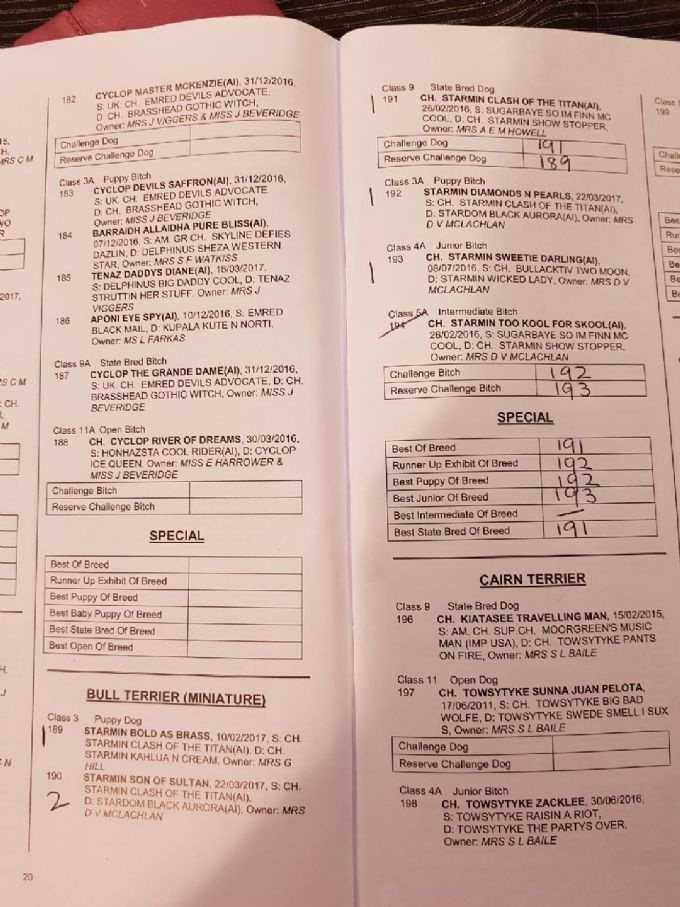 182 CYCLOP MASTER MCKENZIE(AI), 31/12/2016,
S: UK. CH. EMRED DEVILS ADVOCATE,
D: CH. BRASSHEAD GOTHIC WITCH,
Owner: MRS J VIGGERS & MISS J BEVERIDGE
Challenge Dog
Reserve Challenge Dog
Class 3A Puppy Bitch
183 CYCLOP DEVILS SAFFRON(AI), 31/12/2016,
S: UK. CH. EMRED DEVILS ADVOCATE,
D: CH. BRASSHEAD GOTHIC WITCH,
Owner: MISS J BEVERIDGE
184 BARRAIDH ALLAIDHA PURE BLISS(AI),
07/12/2016, S: AM. GR CH. SKYLINE DEFIES
DAZLIN, D: DELPHINUS SHEZA WESTERN
STAR, Owner: MRS S F WATKISS
185 TENAZ DADDYS DIANE(AI), 16/03/2017,
S: DELPHINUS BIG DADDY COOL, D: TENAZ
STRUTTIN HER STUFF. Owner: MRS J
VIGGERS
186 APONI EYE SPY(AI), 10/12/2016, S: EMRED
BLACK MAIL, D: KUPALA KUTE N NORTI,
Owner: MS L FARKAS
Class 9A State Bred Bitch
187 CYCLOP THE GRANDE DAME(AI), 31/12/2016,
S: UK. CH. EMRED DEVILS ADVOCATE, D: CH.
BRASSHEAD GOTHIC WITCH, Owner: MISS J
BEVERIDGE
Class 11A Open Bitch
188 CH. CYCLOP RIVER OF DREAMS, 30/03/2016,
S: HONHAZSTA COOL RIDER(AI), D: CYCLOP
ICE QUEEN, Owner: MISS E HARROWER &
MISS J BEVERIDGE
Challenge Bitch
Reserve Challenge Bitch
SPECIAL
Best Of Breed
Runner Up Exhibit Of Breed
Best Puppy Of Breed
Best Baby Puppy Of Breed
Best State Bred Of Breed
Best Open Of Breed
BULL TERRIER (MINIATURE)
Class 3 Puppy Dog
189 STARMIN BOLD AS BRASS, 10/02/2017, S: CH.
STARMIN CLASH OF THE TITAN(AI), D: CH.
STARMIN KAHLUA N CREAM, Owner: MRS G
HILL
190 STARMIN SON OF SULTAN, 22/03/2017, S: CH.
STARMIN CLASH OF THE TITAN(AI),
2 D: STARDOM BLACK AURORA(AI), Owner: MRS
D V MCLACHLAN
20
Class 9 State Bred Dog
191 CH. STARMIN CLASH OF THE TITAN(AI),
26/02/2016, S: SUGARBAYE SO IM FINN MC
COOL, D: CH. STARMIN SHOW STOPPER,
Owner: MRS A E M HOWELL
Challenge Dog 191
Reserve Challenge Dog 189
Class 3A Puppy Bitch
192 STARMIN DIAMONDS N PEARLS, 22/03/2017,
S: CH. STARMIN CLASH OF THE TITAN(AI),
D: STARDOM BLACK AURORA(AI), Owner: MRS
D V MCLACHLAN
Class 4A Junior Bitch
193 CH. STARMIN SWEETIE DARLING(AI),
08/07/2016, S: CH. BULLACKTIV TWO MOON,
D: STARMIN WICKED LADY, Owner: MRS D V
MCLACHLAN
Class 5A Intermediate Bitch
194 CH. STARMIN TOO KOOL FOR SKOOL(AI),
26/02/2016, S: SUGARBAYE SO IM FINN MC
COOL, D: CH. STARMIN SHOW STOPPER,
Owner: MRS D V MCLACHLAN
Challenge Bitch 192
Reserve Challenge Bitch 193
SPECIAL
Best Of Breed 191
Runner Up Exhibit Of Breed 192
Best Puppy Of Breed 192
Best Junior Of Breed 193
Best Intermediate Of Breed —
Best State Bred Of Breed 191
CAIRN TERRIER
Class 9 State Bred Dog
196 CH. KIATASEE TRAVELLING MAN, 15/02/2015,
S: AM. CH. SUP.CH. MOORGREEN'S MUSIC
MAN (IMP USA), D: CH. TOWSYTYKE PANTS
ON FIRE, Owner: MRS S L BAILE
Class 11 Open Dog
197 CH. TOWSYTYKE SUNNA JUAN PELOTA,
17/06/2011, S: CH. TOWSYTYKE BIG BAD
WOLFE, D: TOWSYTYKE SWEDE SMELL I SUX
S, Owner: MRS S L BAILE
Challenge Dog
Reserve Challenge Dog
Class 4A Junior Bitch
198 CH. TOWSYTYKE ZACKLEE, 30/06/2016,
S: TOWSYTYKE RAISIN A RIOT,
D: TOWSYTYKE THE PARTYS OVER,
Owner: MRS S L BAILE
199